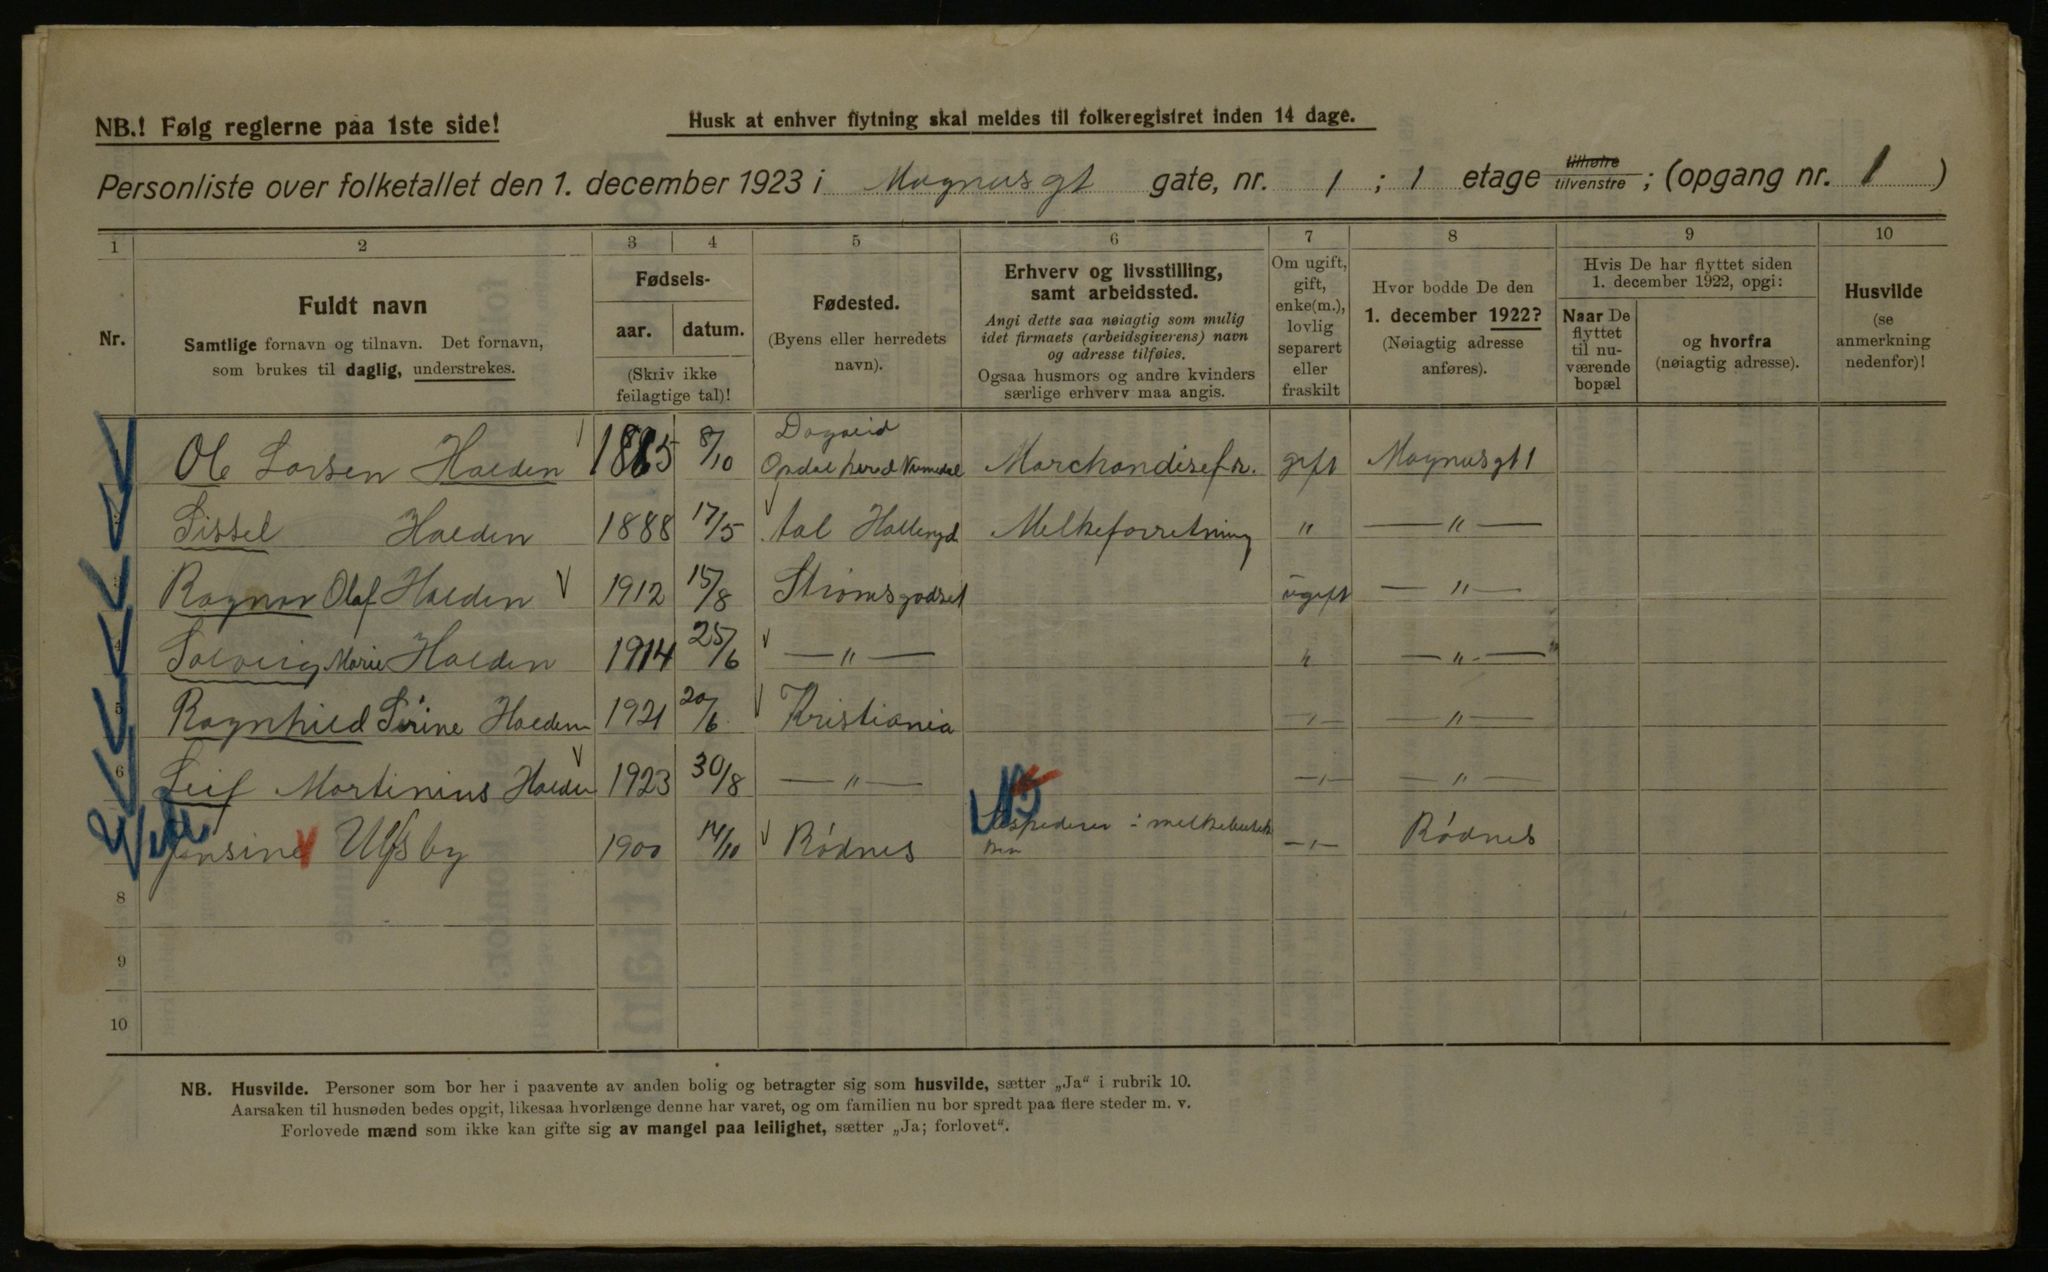 NB.! Følg reglerne paa 1ste side!
Husk at enhver flytning skal meldes til folkeregistret inden 14 dage.
Personliste over folketallet den 1. december 1923 i Magnusgt gate, nr. 1 ; 1 etage tilhøire tilvenstre ; (opgang nr. 1 )
1 2 3 4 5 6 7 8 9 10
Nr.
Fuldt navn
Samtlige fornavn og tilnavn. Det fornavn,
som brukes til daglig, understrekes.
Fødsels-
aar. datum.
(Skriv ikke
feilagtige tal)!
Fødested.
(Byens eller herredets
navn).
Erhverv og livsstilling,
samt arbeidssted.
Angi dette saa nøiagtig som mulig
idet firmaets (arbeidsgiverens) navn
og adresse tilføies.
Ogsaa husmors og andre kvinders
særlige erhverv maa angis.
Om ugift,
gift,
enke(m.),
lovlig
separert
eller
fraskilt
Hvor bodde De den
1. december 1922?
(Nøiagtig adresse
anføres).
Hvis De har flyttet siden
1. december 1922, opgi:
Naar De
flyttet
til nu-
værende
bopæl
og hvorfra
(nøiagtig adresse).
Husvilde
(se
anmerkning
nedenfor)!
Ole Larsen Halden 1885 8/10 Dagalid Opdal herred Numedal Marchandisefr. gift Magnusgt 1
Sissel Halden 1888 17/5 Aal Hallingd Melkeforretning " — " —
Ragnar Olaf Halden 1912 15/8 Strømsgodset ugift — " —
4 Solveig Marie Halden 1914 25/6 — " — " — " —
5 Ragnhild Sirine Halden 1921 20/6 Kristiania — " — — " —
6 Leif Martinius Halden 1923 30/8 — " — — " — — " —
Jensine Ulfsby 1900 14/10 Rødnes Expederer i melkebutik — " — Rødnes
8
9
10
NB. Husvilde. Personer som bor her i paavente av anden bolig og betragter sig som husvilde, sætter „Ja“ i rubrik 10.
Aarsaken til husnøden bedes opgit, likesaa hvorlænge denne har varet, og om familien nu bor spredt paa flere steder m. v.
Forlovede mænd som ikke kan gifte sig av mangel paa leilighet, sætter „Ja; forlovet“.